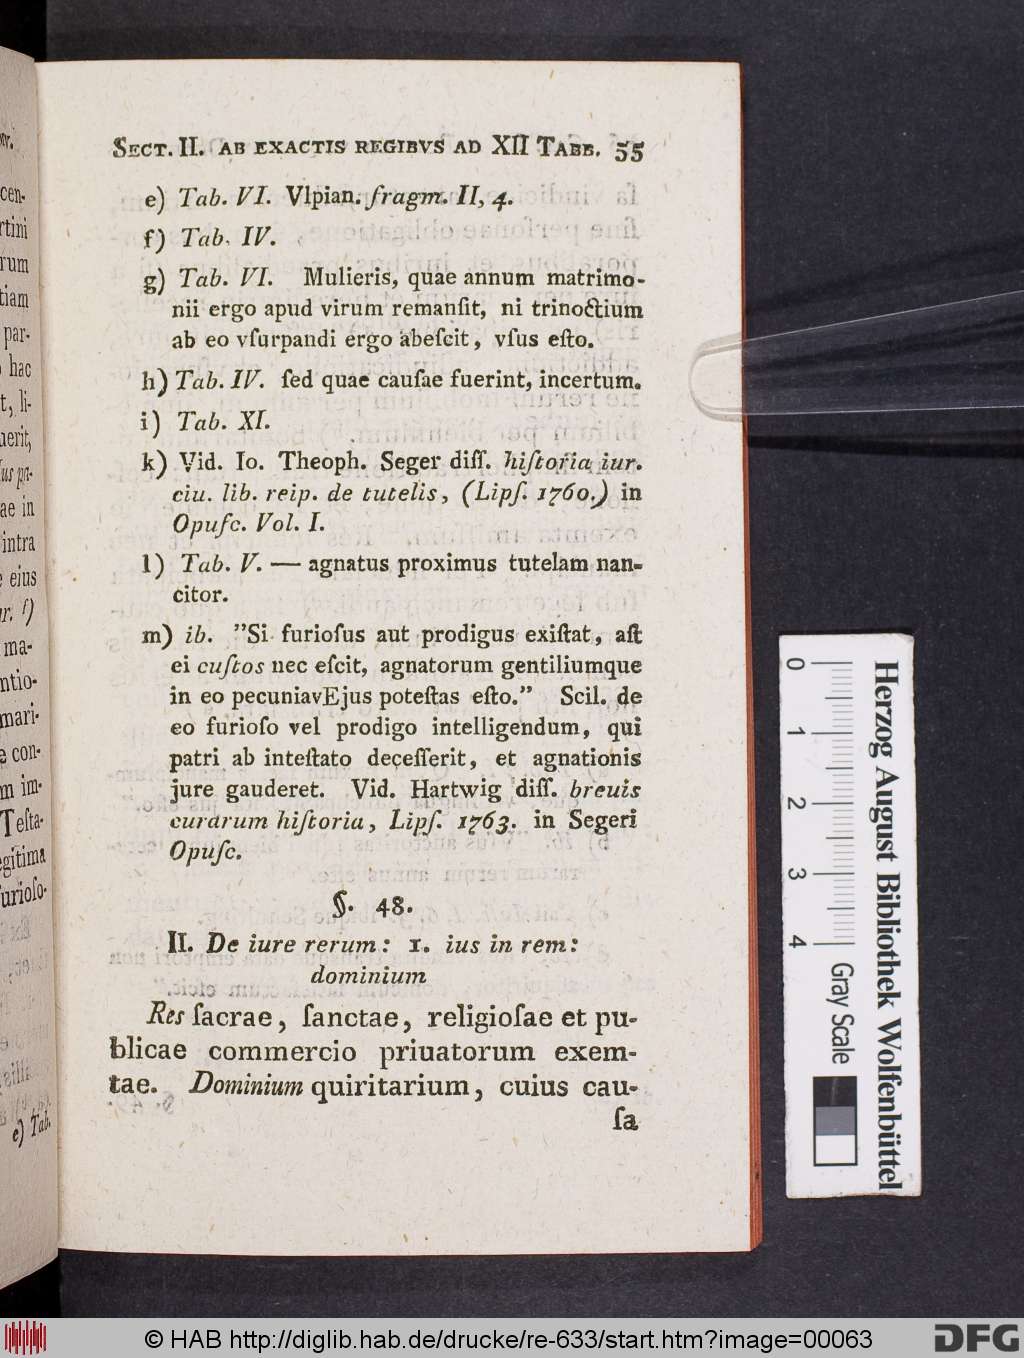 SECT. II. AB EXACTIS REGIBVS AD XII TABB. 55
e) Tab. VI. Vlpian. fragm. II, 4.
f) Tab. IV.
g) Tab. VI. Mulieris, quae annum matrimo-
nii ergo apud virum remanſit, ni trinoctium
ab eo vſurpandi ergo abeſcit, vſus eſto.
h) Tab. IV. ſed quae cauſae fuerint, incertum.
i) Tab. XI.
k) Vid. Io. Theoph. Seger diſſ. hiſtoria iur.
ciu. lib. reip. de tutelis, (Lipſ. 1760.) in
Opuſc. Vol. I.
l) Tab. V. — agnatus proximus tutelam nan-
citor.
m) ib. ”Si furioſus aut prodigus exiſtat, aſt
ei cuſtos nec eſcit, agnatorum gentiliumque
in eo pecuniavEjus poteſtas eſto.” Scil. de
eo furioſo vel prodigo intelligendum, qui
patri ab inteſtato deceſſerit, et agnationis
jure gauderet. Vid. Hartwig diſſ. breuis
curarum hiſtoria, Lipſ. 1763. in Segeri
Opuſc.
§. 48.
II. De iure rerum: 1. ius in rem:
dominium
Res ſacrae, ſanctae, religioſae et pu-
blicae commercio priuatorum exem-
tae. Dominium quiritarium, cuius cau-
ſa
cen-
rtini
rum
tiam
par-
hac
t, li-
uerit,
ius pa-
ae in
intra
eius
ur. f)
ma-
ntio-
mari-
e con-
m im-
Teſta-
egitima
furioſo-
e) Tab.
0 1 2 3 4
Herzog August Bibliothek Wolfenbüttel
Gray Scale
© HAB http://diglib.hab.de/drucke/re-633/start.htm?image=00063
DFG